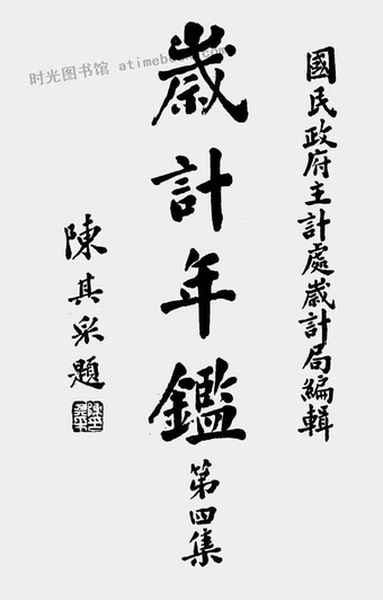 國民政府主計處歲計局編輯
歲計年鑑
第四集
陳其采題
时光图书馆 atimebook